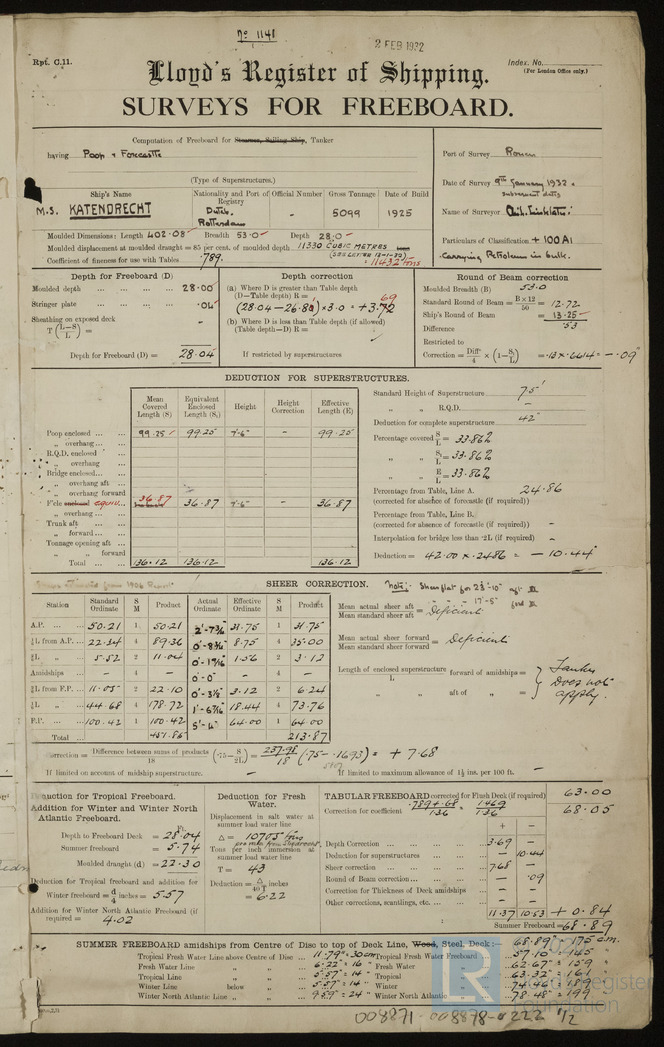 No 1141
2 FEB 1932
Rpt. C.11.
Index. No.
(For London Office only.)
Lloyd's Register of Shipping.
SURVEYS FOR FREEBOARD.
Computation of Freeboard for Steamer, Sailing Ship, Tanker
having Poop & Forecastle
(Type of Superstructures.)
Port of Survey Rouen
Date of Survey 9th January 1932 &
subsequent dates
Name of Surveyor
Particulars of Classification +100A1
Carrying Petroleum in bulk.
Ship's Name
M.S. KATENDRECHT
Nationality and Port of Registry
Dutch.
Rotterdam
Official Number
-
Gross Tonnage
5099
Date of Build
1925
Moulded Dimensions: Length 402.08 Breadth 53.0 Depth 28.0
Moulded displacement at moulded draught = 85 per cent. of moulded depth 11330 CUBIC METRES tons
(SEE LETTER 12-1-32)
= 11432 tons
Coefficient of fineness for use with Tables .789
Depth for Freeboard (D)
Moulded depth ... 28.00
Stringer plate ... .04
Sheathing on exposed deck -
T (L-S/L) =
Depth for Freeboard (D) = 28.04
Depth correction
(a) Where D is greater than Table depth
(D—Table depth) R =
69
(28.04 - 26.80) × 3.0 = +3.72
(b) Where D is less than Table depth (if allowed)
(Table depth—D) R =
If restricted by superstructures
Round of Beam correction
Moulded Breadth (B) 53.0
Standard Round of Beam = B × 12 / 50 = 12.72
Ship's Round of Beam = 13.25
Difference .53
Restricted to
Correction = Diff/4 × (1 - S1/L) = .13 × .6614 = -.09
DEDUCTION FOR SUPERSTRUCTURES.
Mean Covered Length (S) Equivalent Enclosed Length (S1) Height Height Correction Effective Length (E)
Poop enclosed ... 99.25 99.25 7'-6" - 99.25
„ overhang ...
R.Q.D. enclosed
„ overhang
Bridge enclosed...
„ overhang aft
„ overhang forward
F'cle equiv... 36.87 36.87 7'-6" - 36.87
„ overhang ...
Trunk aft ...
„ forward ...
Tonnage opening aft ...
„ „ forward
Total ... 136.12 136.12 136.12
Standard Height of Superstructure 7.5'
„ „ R.Q.D. -
Deduction for complete superstructure 42"
Percentage covered S/L = 33.86%
„ „ S1/L = 33.86%
„ „ E/L = 33.86%
Percentage from Table, Line A. 24.86
(corrected for absence of forecastle (if required))
Percentage from Table, Line B.
(corrected for absence of forecastle (if required)) -
Interpolation for bridge less than .2L (if required) -
Deduction = 42.00 × .2486 = - 10.44
SHEER CORRECTION.
Station Standard Ordinate S M Product Actual Ordinate Effective Ordinate S M Product
A.P. ... 50.21 1 50.21 2'-7¾" 31.75 1 31.75
⅙L from A.P. ... 22.34 4 89.36 0'-8¾" 8.75 4 35.00
⅓L „ ... 5.52 2 11.04 0'-1 9/16" 1.56 2 3.12
Amidships ... - 4 - 0'-0" - 4 -
⅓L from F.P. ... 11.05 2 22.10 0'-3⅛" 3.12 2 6.24
⅙L „ ... 44.68 4 178.72 1'-6 7/16" 18.44 4 73.76
F.P. ... 100.42 1 100.42 5'-4" 64.00 1 64.00
Total ... 451.85 213.87
Mean actual sheer aft / Mean standard sheer aft = Deficient
Mean actual sheer forward / Mean standard sheer forward = Deficient
Length of enclosed superstructure / L forward of amidships =
„ „ aft of „ =
Tanker
Does not
apply.
Correction = Difference between sums of products / 18 (.75 - S/2L) = 237.98 / 18 (.75 - .1693) = + 7.68
.5807
If limited on account of midship superstructure. -
If limited to maximum allowance of 1½ ins. per 100 ft. -
Deduction for Tropical Freeboard.
Addition for Winter and Winter North Atlantic Freeboard.
Depth to Freeboard Deck = 28.04
Summer freeboard = 5.74
Moulded draught (d) = 22.30
Deduction for Tropical freeboard and addition for
Winter freeboard = d/4 inches = 5.57
Addition for Winter North Atlantic Freeboard (if required) = 4.02
Deduction for Fresh Water.
Displacement in salt water at summer load water line
Δ = 10705 tons
Tons per inch immersion at summer load water line
T = 43
Deduction = Δ / 40 T inches
= 6.22
TABULAR FREEBOARD corrected for Flush Deck (if required) 63.00
Correction for coefficient .789 + .68 / 1.36 = 1.469 / 1.36 68.05
+ -
Depth Correction ... 3.69 -
Deduction for superstructures ... - 10.44
Sheer correction ... 7.68 -
Round of Beam correction ... - .09
Correction for Thickness of Deck amidships - -
Other corrections, scantlings, etc. ... - -
11.37 10.53 + 0.84
Summer Freeboard = 68.89
SUMMER FREEBOARD amidships from Centre of Disc to top of Deck Line, Wood, Steel, Deck:— 68.89" = 175 cm.
Tropical Fresh Water Line above Centre of Disc ... 11.79" = 30 cm Tropical Fresh Water Freeboard 57.10" = 145 "
Fresh Water Line „ „ ... 6.22" = 16 " Fresh Water „ 62.67" = 159 "
Tropical Line „ „ ... 5.57" = 14 " Tropical „ 63.32" = 161
Winter Line below „ ... 5.57" = 14 " Winter „ 74.46" = 189
Winter North Atlantic Line „ „ ... 9.59" = 24 " Winter North Atlantic „ 78.48" = 199
LR
Lloyd's Register
Foundation
008871-008878-0222 1/2